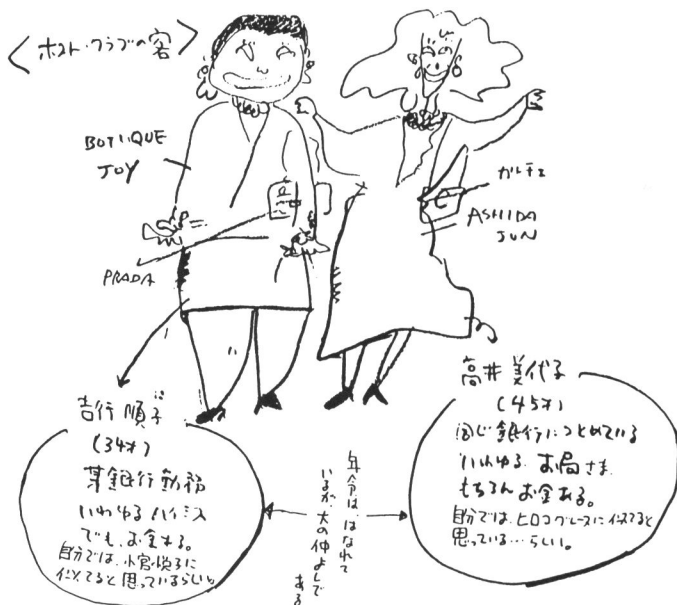 〈ホスト・クラブの客〉
BOTIQUE
JOY
PRADA
カルチェ
ASHIDA
JUN
吉行順子
(34才)
某銀行勤務
いわゆるハイミス
でも、お金ある。
自分では、小宮悦子に
似てると思っているらしい。
年令は、はなれて
いるが、大の仲よしで
ある
高井美代子
(45才)
同じ銀行につとめている
いわゆる、お局さま。
もちろんお金ある。
自分では、ヒロコグレースに似てると
思っている…らしい。